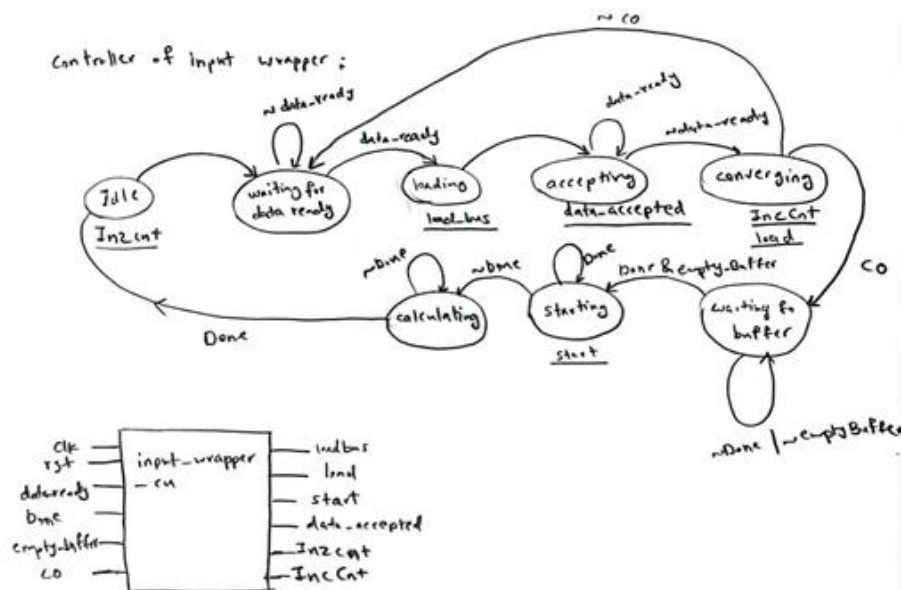 ~ co
Controller of input wrapper :
~data-ready
data-ready
data-ready
~data-ready
Idle
Inzcnt
waiting for
data ready
loading
load_bus
accepting
data_accepted
converging
IncCnt
load
CO
~Done
~Done
Done
Done & empty_Buffer
calculating
starting
start
waiting for
buffer
Done
~Done | ~emptyBuffer
clk
rst
dataready
Done
empty_buffer
co
input_wrapper
_cu
loadbus
load
start
data_accepted
Inzcnt
IncCnt